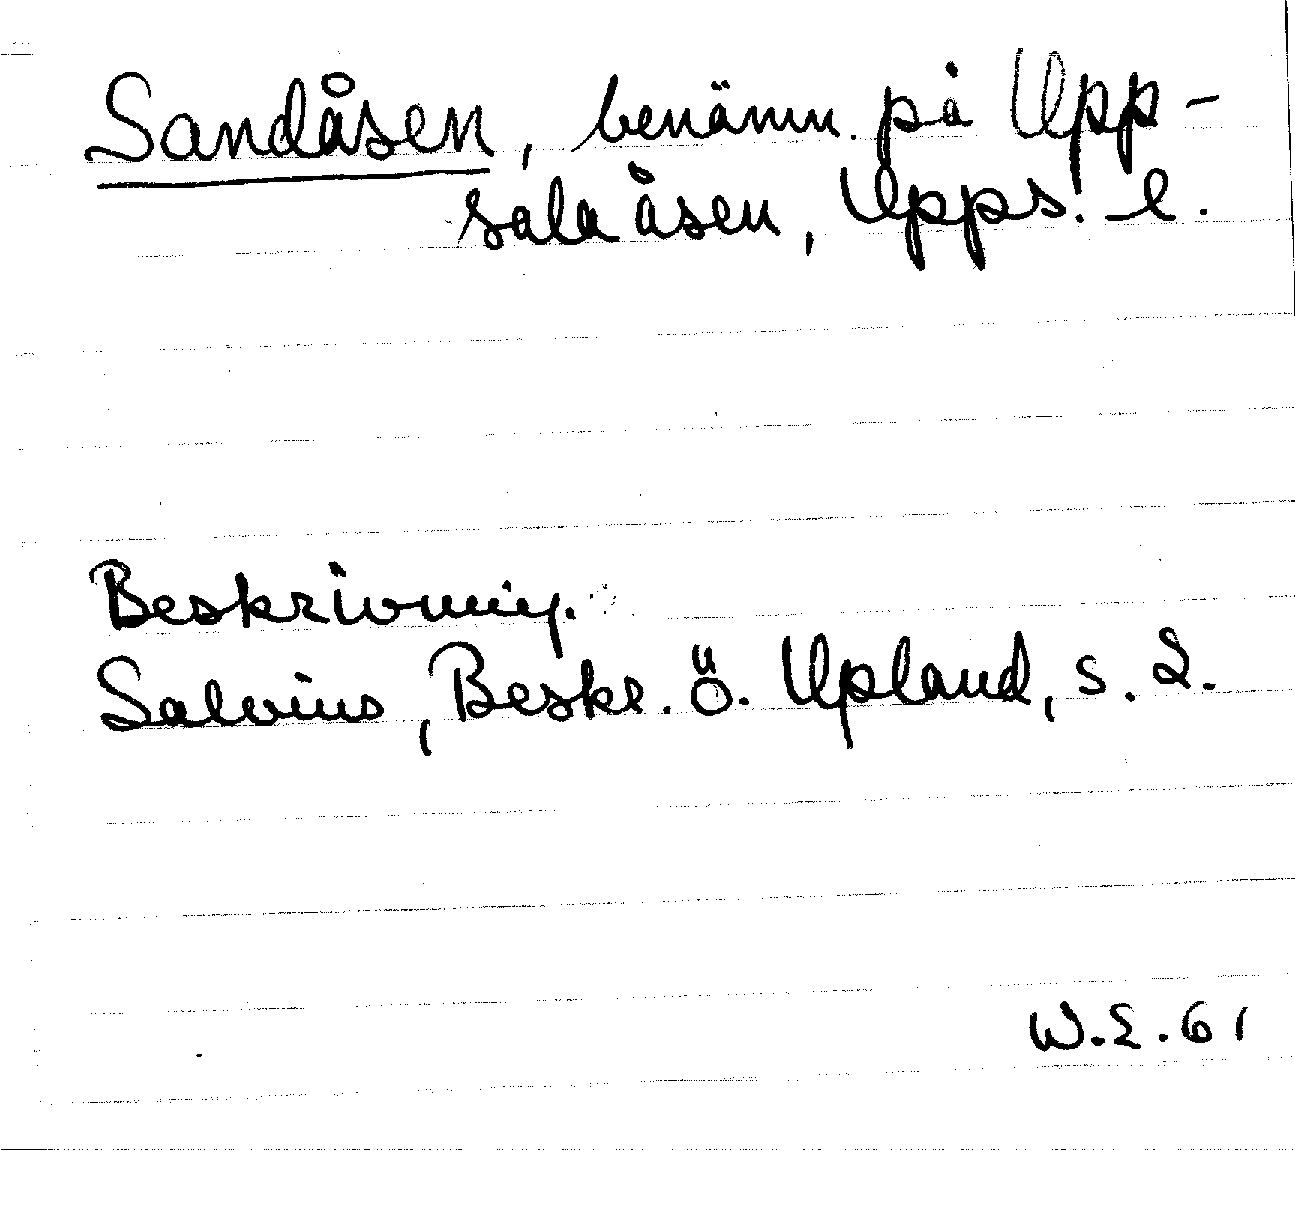 Sandåsen, benämn. på Upp-
sala åsen, Upps. l.
Beskrivning.
Salvius, Beskr. ö. Upland, s. 2.
W.E. 61